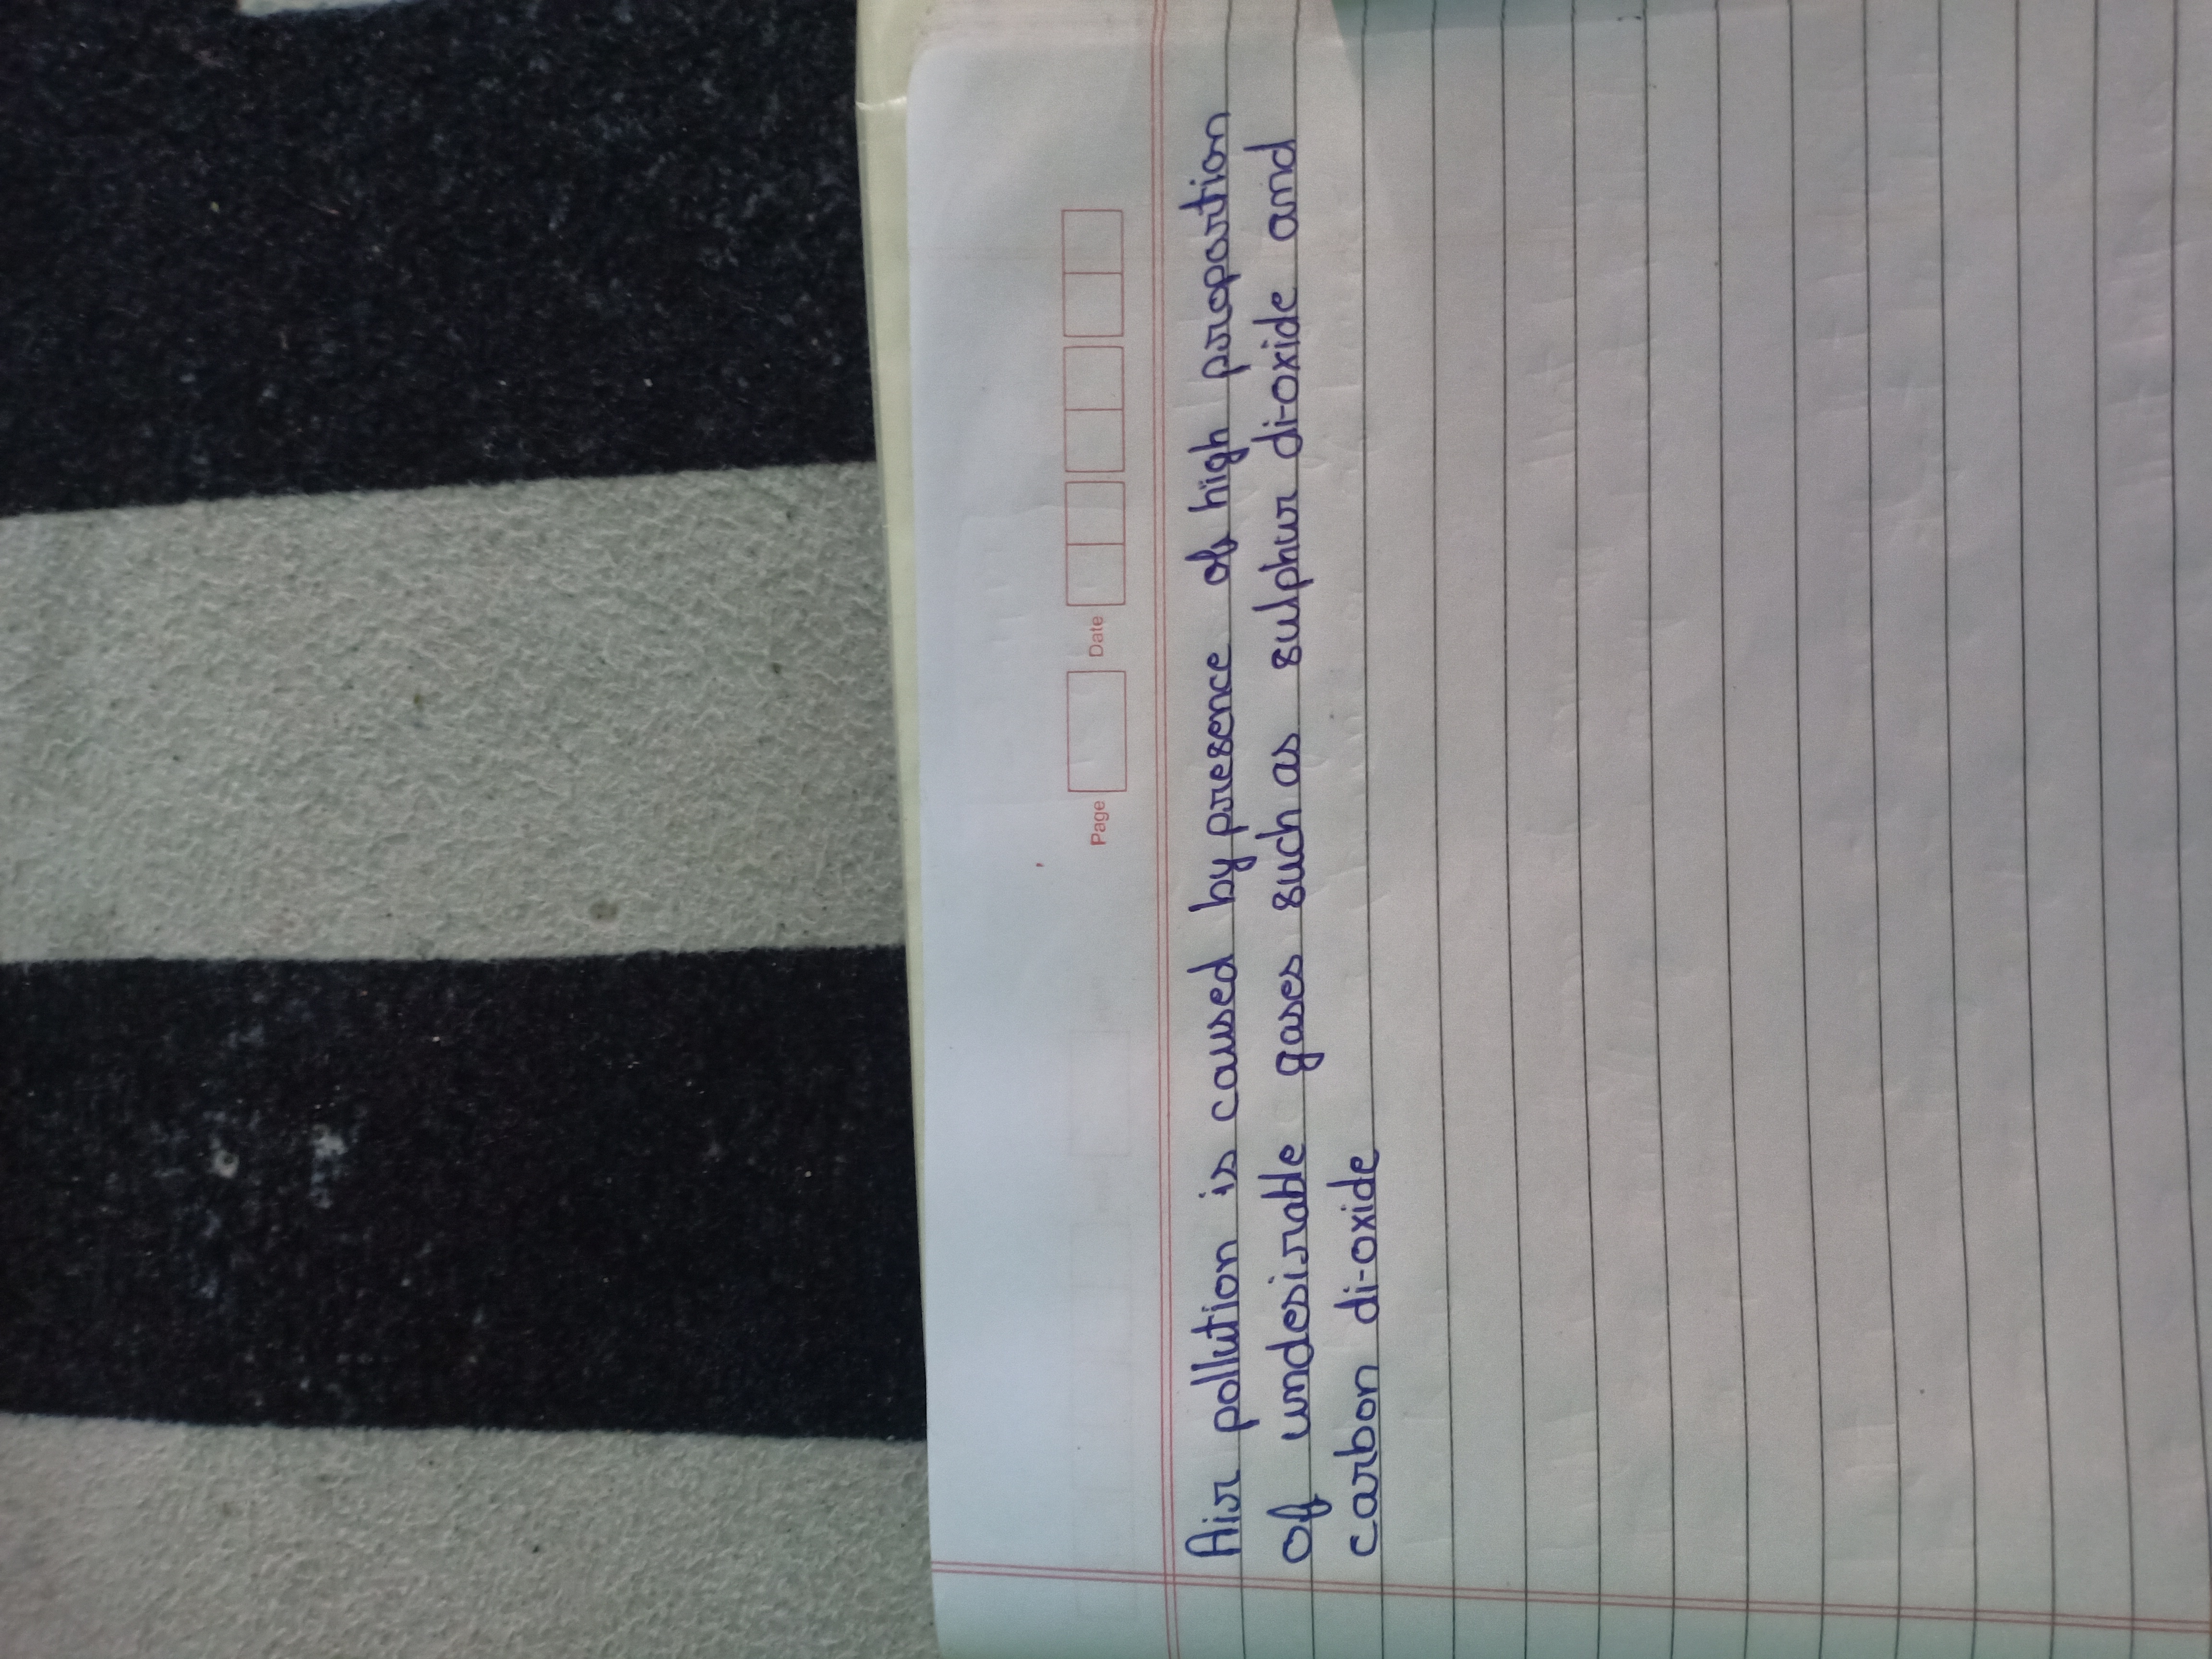 Page Date
Air pollution is caused by presence of high proportion
of undesirable gases such as sulphur di-oxide and
carbon di-oxide